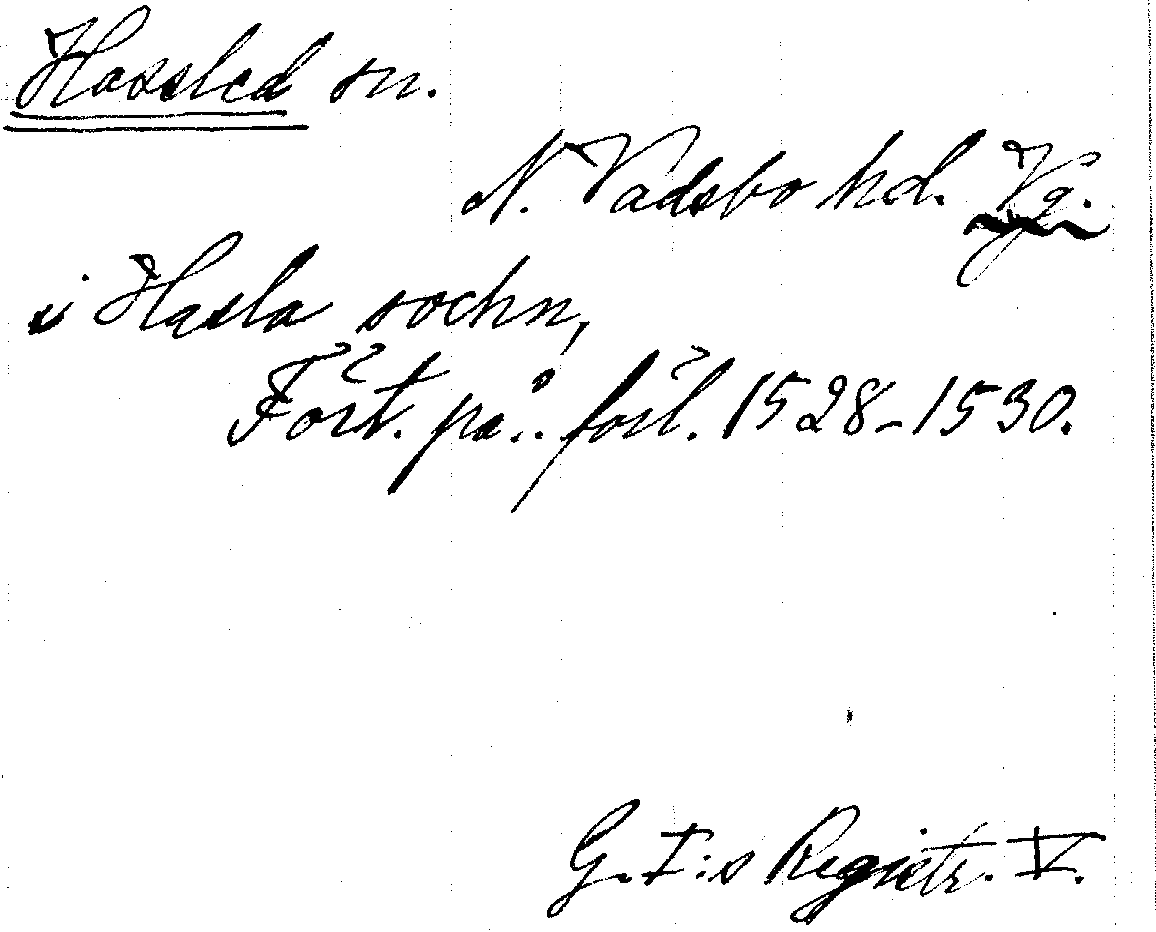 Hassled sn.
N. Vadsbo hd. Vg.
i Hasla sochn,
Fört. på .. förl. 1528-1530.
G. I:s Registr. V.